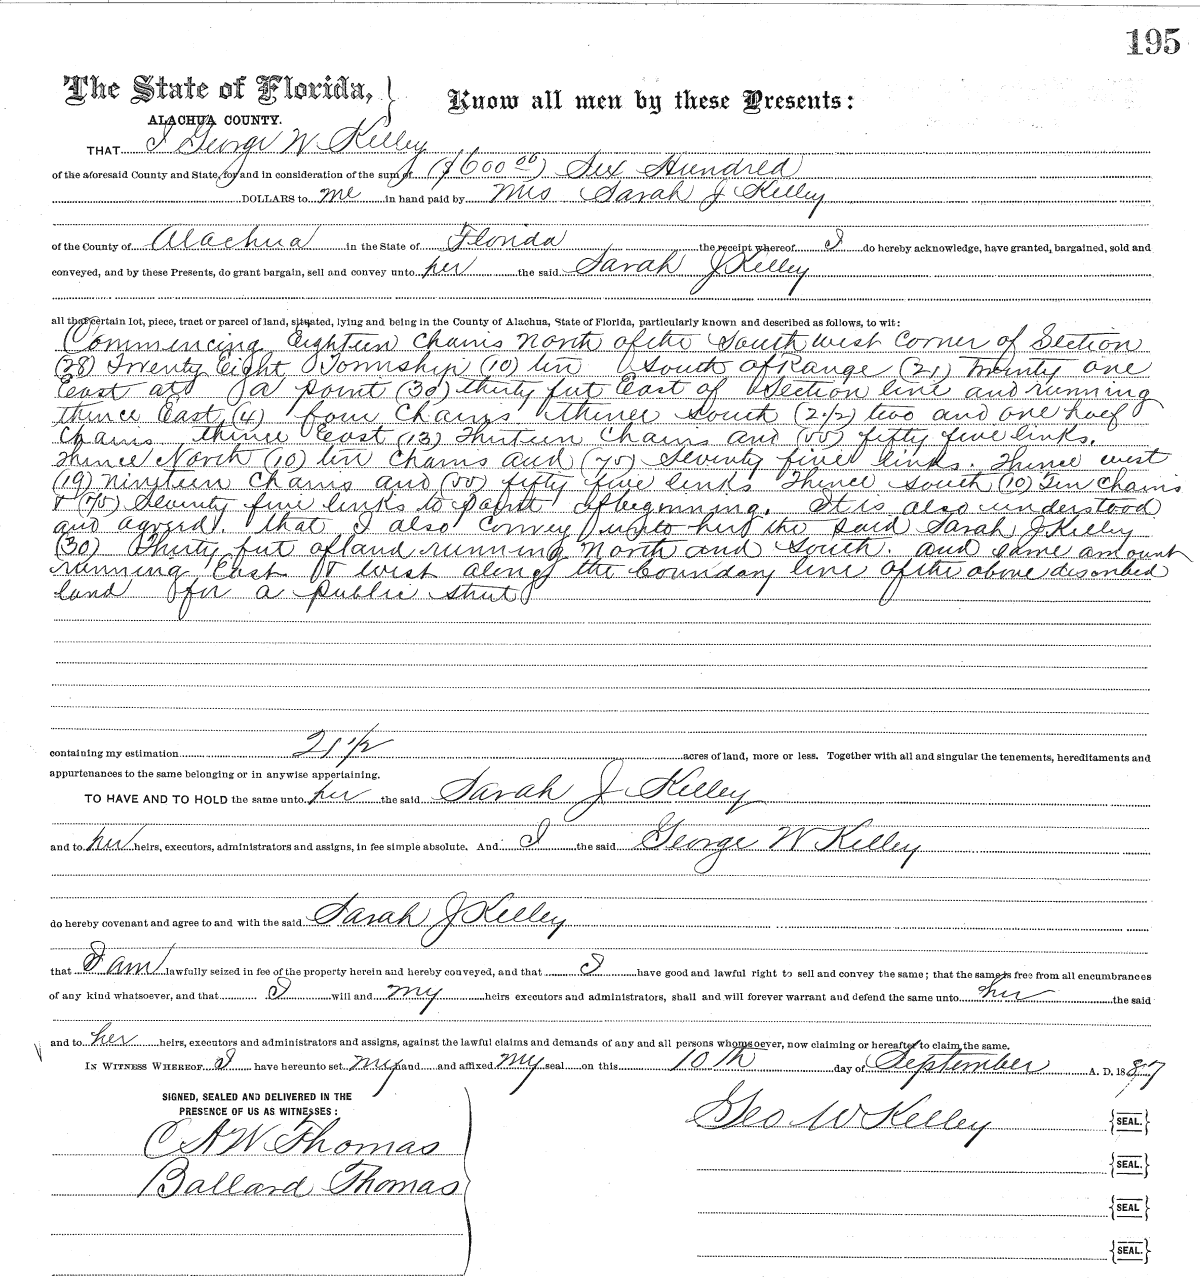 195
The State of Florida,
ALACHUA COUNTY.
Know all men by these Presents:
THAT I George W Kelley
of the aforesaid County and State, for and in consideration of the sum of ($600 00) Six Hundred
DOLLARS to me in hand paid by Mrs Sarah J Kelley
of the County of Alachua in the State of Florida the receipt whereof I do hereby acknowledge, have granted, bargained, sold and
conveyed, and by these Presents, do grant bargain, sell and convey unto her the said Sarah J Kelley
all that certain lot, piece, tract or parcel of land, situated, lying and being in the County of Alachua, State of Florida, particularly known and described as follows, to wit:
Commencing Eighteen Chains North of the South west Corner of Section
(28) Twenty Eight Township (10) ten South of Range (21) Twenty one
East at a point (30) thirty feet East of Section line and running
thence East (4) four Chains thence South (2 1/2) two and one half
Chains thence East (13) Thirteen Chains and (55) fifty five links.
Thence North (10) ten Chains and (75) Seventy five links. Thence west
(19) nineteen Chains and (55) fifty five links Thence South (10) Ten Chains
& (75) Seventy five links to point of beginning. It is also understood
and agreed. that I also Convey unto her the said Sarah J Kelley
(30) Thirty feet of land running North and South. and same amount
running East & west along the boundary line of the above described
land for a public street
containing my estimation 21 1/2 acres of land, more or less. Together with all and singular the tenements, hereditaments and
appurtenances to the same belonging or in anywise appertaining.
TO HAVE AND TO HOLD the same unto her the said Sarah J Kelley
and to her heirs, executors, administrators and assigns, in fee simple absolute. And I the said George W Kelley
do hereby covenant and agree to and with the said Sarah J Kelley
that I am lawfully seized in fee of the property herein and hereby conveyed, and that I have good and lawful right to sell and convey the same; that the same is free from all encumbrances
of any kind whatsoever, and that I will and my heirs executors and administrators, shall and will forever warrant and defend the same unto her the said
and to her heirs, executors and administrators and assigns, against the lawful claims and demands of any and all persons whomsoever, now claiming or hereafter to claim the same.
IN WITNESS WHEREOF I have hereunto set my hand and affixed my seal on this 10th day of September A. D. 1887
SIGNED, SEALED AND DELIVERED IN THE
PRESENCE OF US AS WITNESSES:
Geo W Kelley SEAL.
C A W Thomas
SEAL.
Ballard Thomas
SEAL
SEAL.